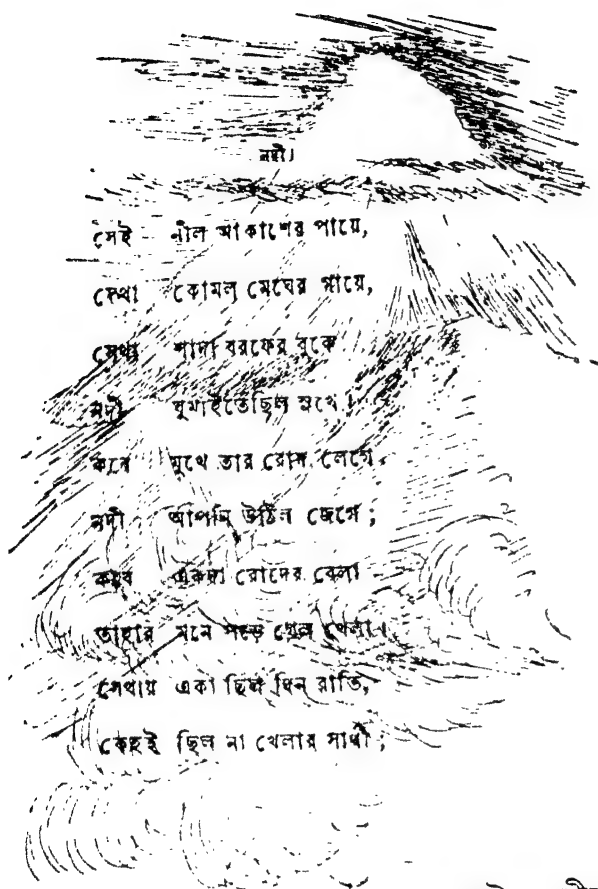 নদী।
সেই নীল আকাশের পায়ে,
সেথা কোমল মেঘের গায়ে,
সেথা শাদা বরফের বুকে
নদী ঘুমাইতেছিল সুখে।
কবে মুখে তার রোদ লেগে,
নদী আপনি উঠিল জেগে ;
কবে একদা রোদের বেলা
তাহার মনে পড়ে গেল খেলা।
সেথায় একা ছিল দিন রাতি,
কেহই ছিল না খেলার সাথী ;